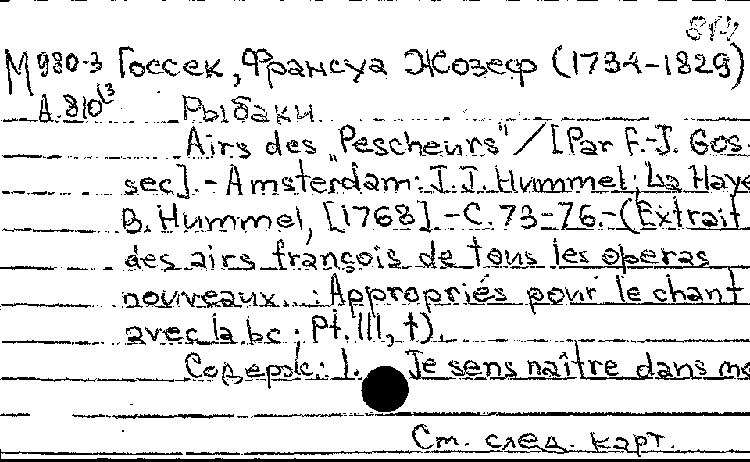 М980-3 Госсек, Франсуа Жозеф (1734-1829)
А.810 Рыбаки.
Airs des „Pescheurs" / [Par F.-J. Gos-
sec]. - Amsterdam: J.J. Hummel; La Haye
B. Hummel, [1768]. - C. 73-76. - (Extrait
des airs françois de tous les operas
nouveaux... : Appropriés pour le chant
avec la bc ; Pt. III, t).
Содерж.: 1. Je sens naître dans mo
См. след. карт.